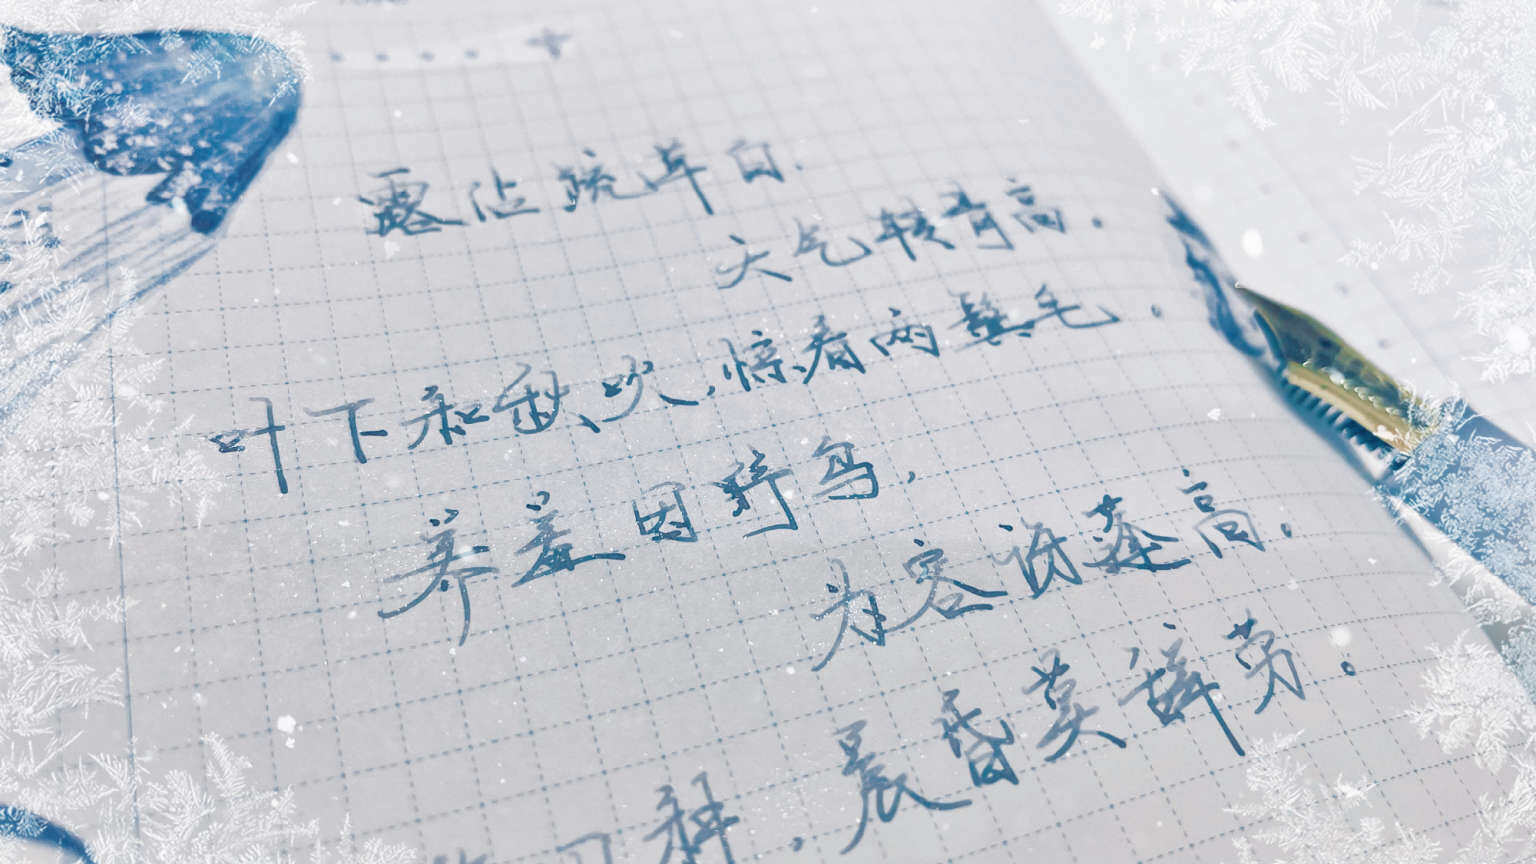 露沾疏草白.
天气转青高.
叶下和秋吹,惊看两鬓毛.
养羞因野鸟,
为客讶蓬高。
种,晨昏莫辞劳。